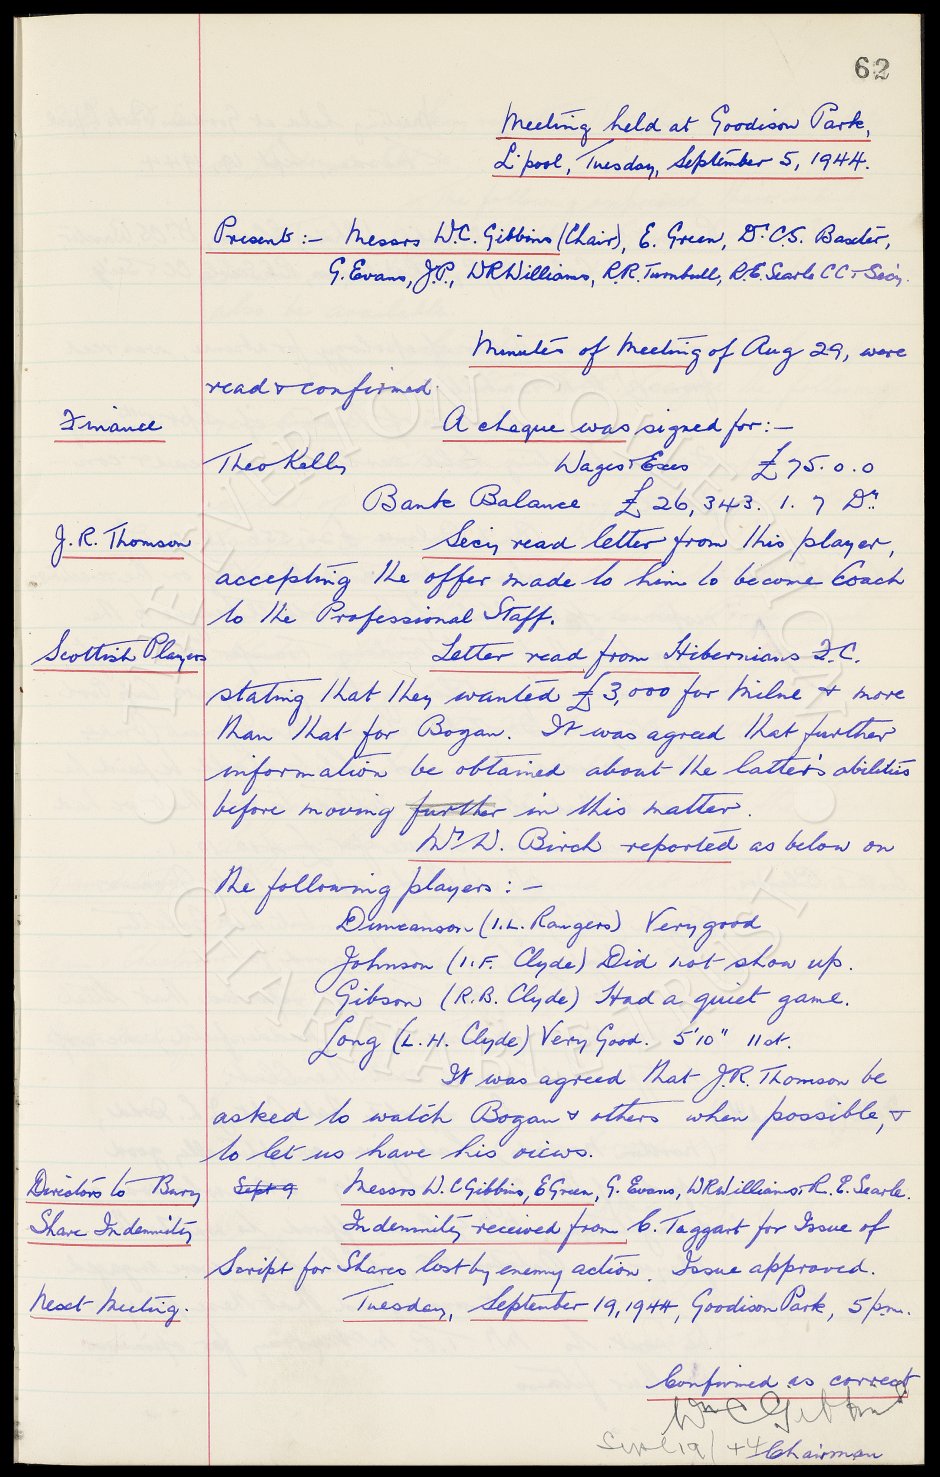 62
Meeting held at Goodison Park,
L'pool, Tuesday, September 5, 1944.
Present:- Messrs W.C. Gibbins (Chair), E. Green, Dr. C.S. Baxter,
G. Evans, J.P., W R Williams, R.R. Turnbull, R.E. Searle C C & Sec'y.
Minutes of Meeting of Aug 29, were
read & confirmed.
Finance A cheque was signed for:-
Theo Kelly Wages & Exes £75. 0. 0
Bank Balance £26,343. 1. 7 Dr.
J. R. Thomson Secy read letter from this player,
accepting the offer made to him to become Coach
to the Professional Staff.
Scottish Players Letter read from Hibernians F.C.
stating that they wanted £3,000 for Milne & more
than that for Bogan. It was agreed that further
information be obtained about the latter's abilities
before moving further in this matter.
Mr W. Birch reported as below on
the following players:-
Duncanson (I.L. Rangers) Very good
Johnson (I.F. Clyde) Did not show up.
Gibson (R.B. Clyde) Had a quiet game.
Long (L.H. Clyde) Very Good. 5'10" 11st.
It was agreed that J.R. Thomson be
asked to watch Bogan & others when possible, &
to let us have his views.
Directors to Bury Sept 9 Messrs W.C Gibbins, E Green, G. Evans, W R Williams & R. E. Searle.
Share Indemnity Indemnity received from C. Taggart for Issue of
Script for Shares lost by enemy action. Issue approved.
Next Meeting. Tuesday, September 19, 1944, Goodison Park, 5 p.m.
Confirmed as correct
Wm C Gibbins
Sept 19/44 Chairman
THE EVERTON COLLECTION
CHARITABLE TRUST